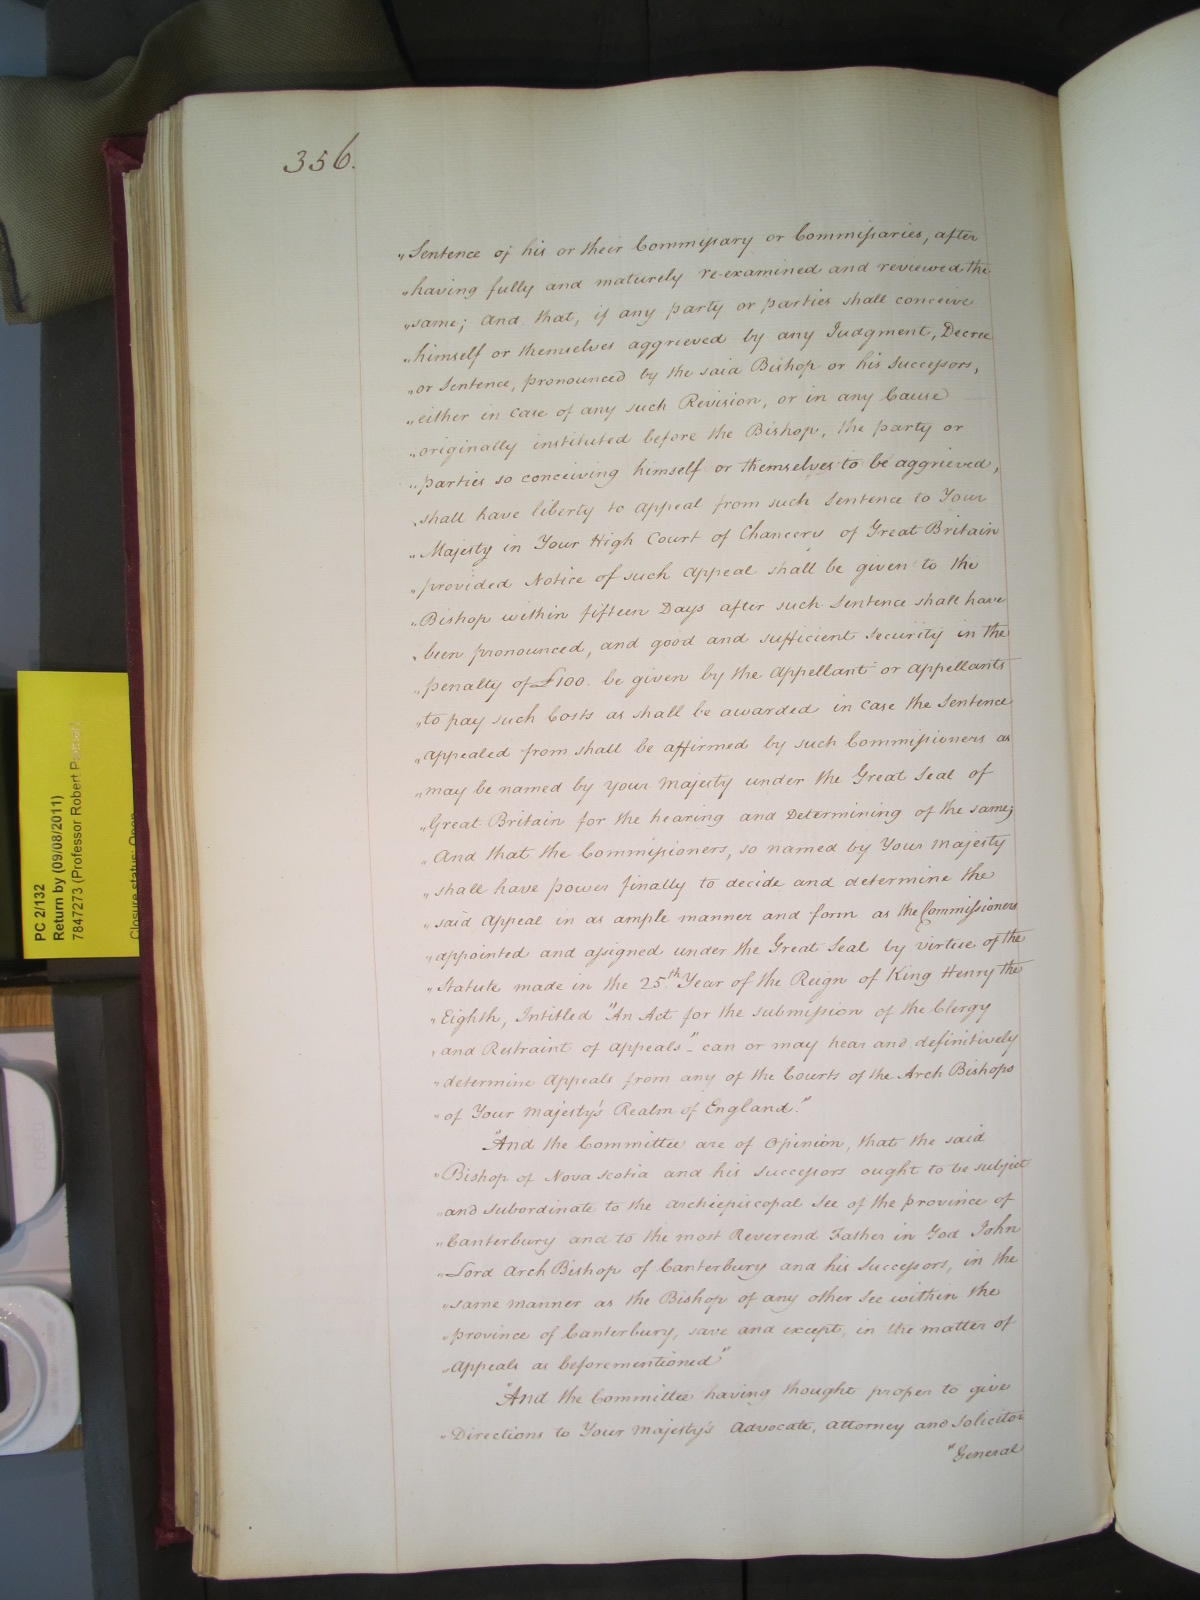 356.
"Sentence of his or their Commissary or Commissaries, after
"having fully and maturely re-examined and reviewed the
"same; and that, if any party or parties shall conceive
"himself or themselves aggrieved by any Judgment, Decree
"or Sentence, pronounced by the said Bishop or his Successors,
"either in case of any such Revision, or in any Cause
"originally instituted before the Bishop, the party or
"parties so conceiving himself or themselves to be aggrieved,
"shall have liberty to appeal from such Sentence to Your
"Majesty in Your High Court of Chancery of Great Britain
"provided Notice of such Appeal shall be given to the
"Bishop within fifteen Days after such Sentence shall have
"been pronounced, and good and sufficient security in the
"penalty of £100. be given by the Appellant or Appellants
"to pay such Costs as shall be awarded in case the Sentence
"appealed from shall be affirmed by such Commissioners as
"may be named by your Majesty under the Great Seal of
"Great Britain for the hearing and Determining of the same;
"And that the Commissioners, so named by Your Majesty
"shall have power finally to decide and determine the
"said Appeal in as ample manner and form as the Commissioners
"appointed and assigned under the Great Seal by virtue of the
"Statute made in the 25.th Year of the Reign of King Henry the
"Eighth, Intitled "An Act for the submission of the Clergy
"and Restraint of appeals" - can or may hear and definitively
"determine Appeals from any of the Courts of the Arch Bishops
"of Your Majesty's Realm of England."
"And the Committee are of Opinion, that the said
"Bishop of Nova Scotia and his Successors ought to be subject
"and subordinate to the archiepiscopal See of the Province of
"Canterbury and to the most Reverend Father in God John
"Lord Arch Bishop of Canterbury and his Successors, in the
"same manner as the Bishop of any other See within the
"Province of Canterbury, save and except, in the matter of
"Appeals as beforementioned"
"And the Committee having thought proper to give
"Directions to Your Majesty's Advocate, Attorney and Solicitor
"General
PC 2/132
Return by (09/08/2011)
7847273 (Professor Robert
Closure status: Open